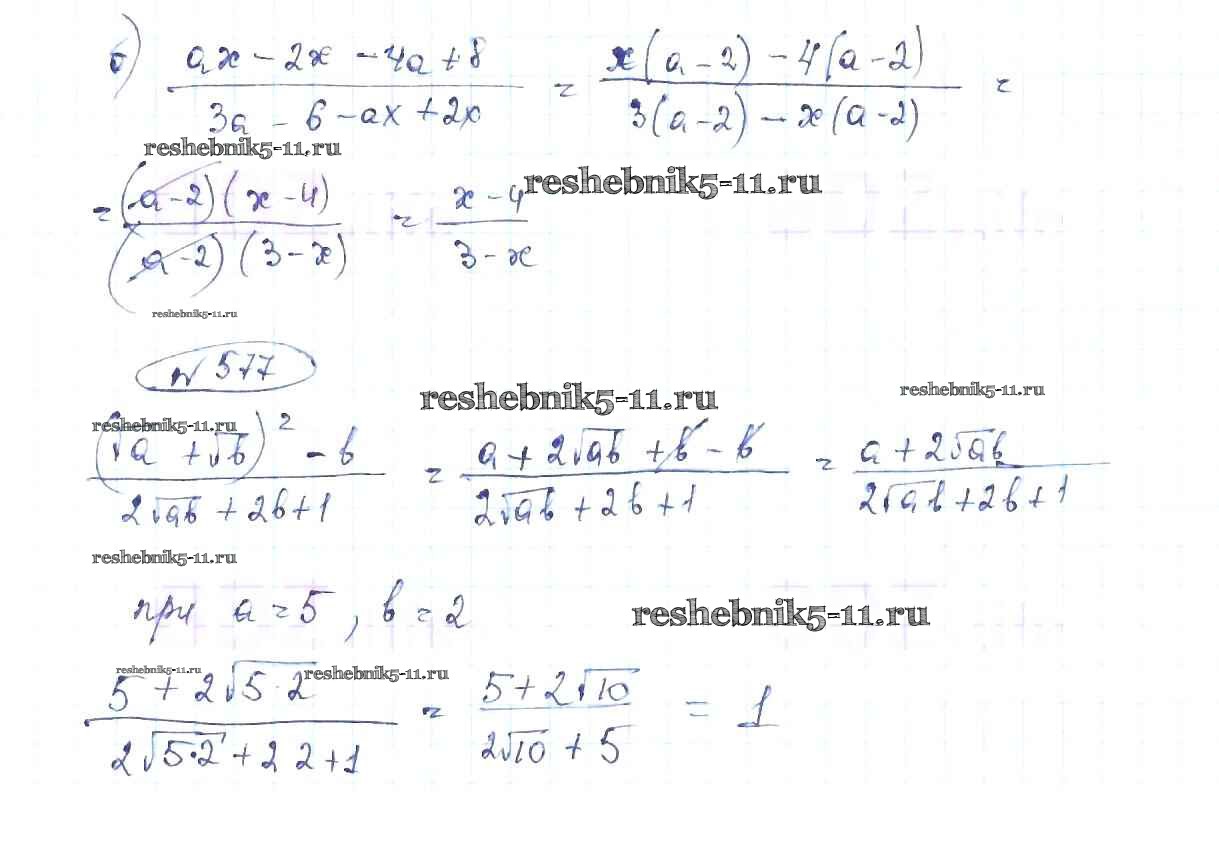 б) (ax - 2x - 4a + 8)/(3a - 6 - ax + 2x) = (x(a - 2) - 4(a - 2))/(3(a - 2) - x(a - 2)) =
reshebnik5-11.ru
reshebnik5-11.ru
= ((a - 2)(x - 4))/((a - 2)(3 - x)) = (x - 4)/(3 - x)
reshebnik5-11.ru
№ 577
reshebnik5-11.ru
reshebnik5-11.ru
reshebnik5-11.ru
((√a + √b)² - b)/(2√ab + 2b + 1) = (a + 2√ab + b - b)/(2√ab + 2b + 1) = (a + 2√ab)/(2√ab + 2b + 1)
reshebnik5-11.ru
при a = 5, b = 2
reshebnik5-11.ru
reshebnik5-11.ru
reshebnik5-11.ru
(5 + 2√5·2)/(2√5·2 + 2 2 + 1) = (5 + 2√10)/(2√10 + 5) = 1